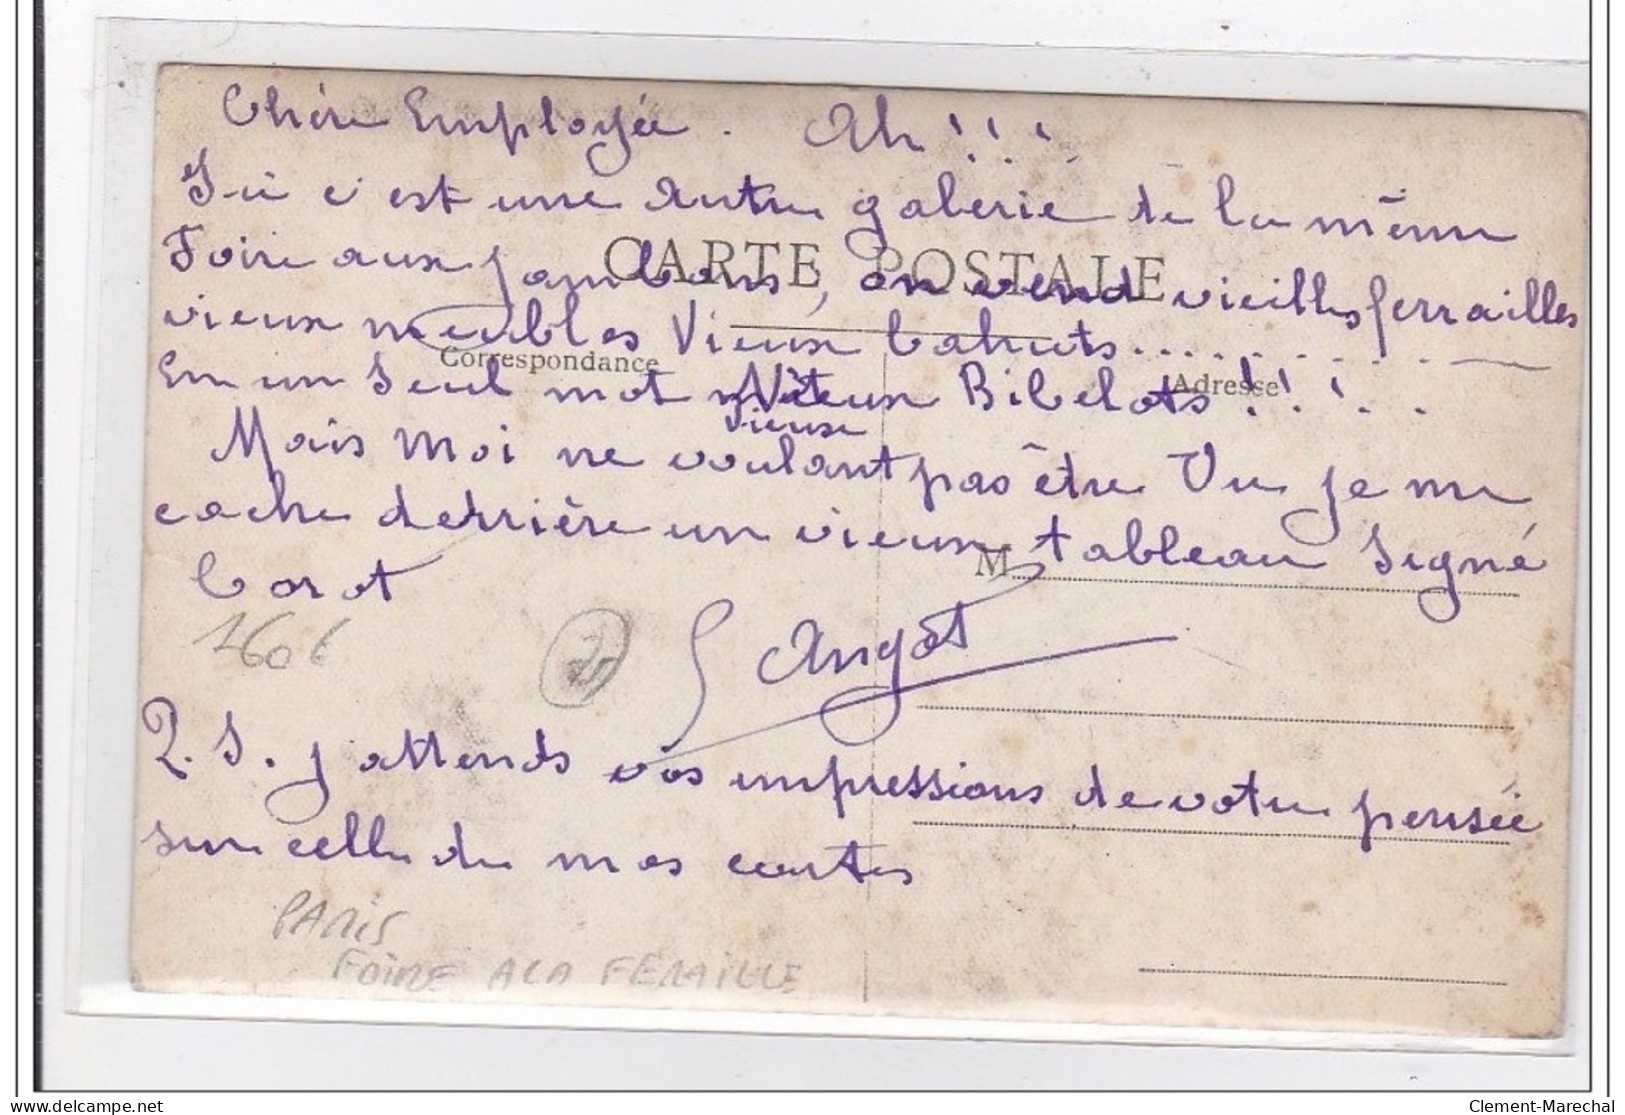 Chère Employée. Ah!!!
Ici c'est une autre galerie de la même
CARTE POSTALE
Foire aux jambons, on vend vieilles ferrailles
vieux meubles Vieux bahuts........
Correspondance
Adresse
En un seul mot Vieux Bibelots!!!..
Vieux
Mais Moi ne voulant pas être Vu je me
cache derrière un vieux tableau Signé
M
Corot
160€
Angot
P.S. j'attends vos impressions de votre pensée
sur celle de mes cartes
PARIS
FOIRE A LA FERAILLE
delcampe.net
Clement-Marechal